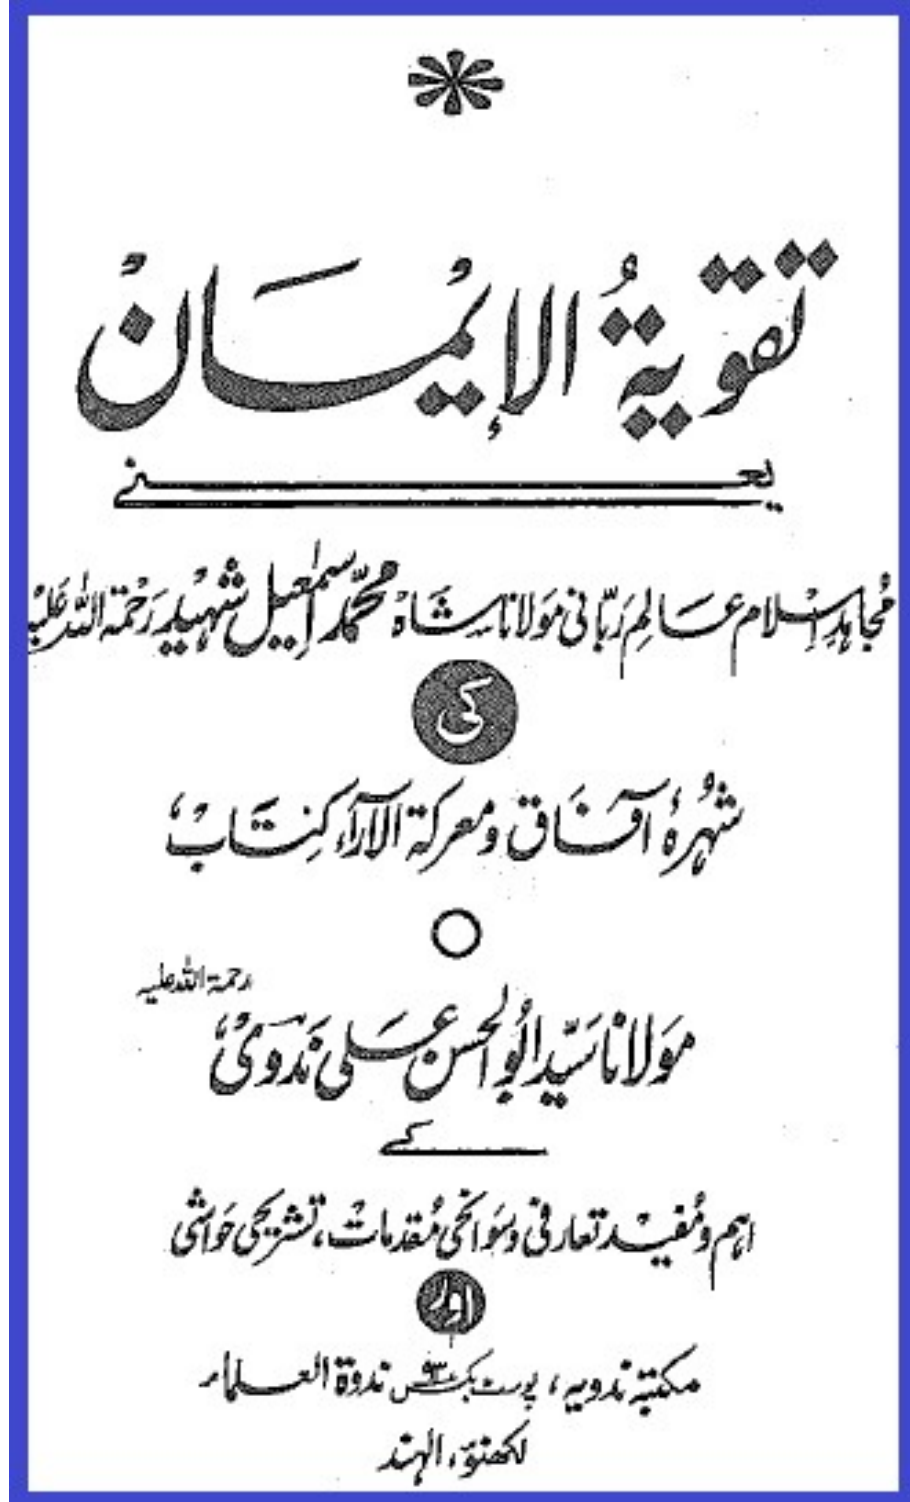 تقویةُ الإیمَانْ
یعنے
مُجاہدِ اِسلام عَالِم رَبّانی مَولانا شَاہ محمّد اسمٰعیل شہید رَحْمۃ اللّٰہ عَلَیْہ
کی
شہرۂ آفَاق و معرکۃ الآراء کِتَابْ،
رحمۃ اللہ علیہ
مَولانا سَیّد ابُو الحسن عَلی نَدوی،
کے
اہم و مُفید تعارفی و سَوانحی مُقدمات، تشریحی حَواشی
اور
مکتبۃ ندویہ، پوسٹ بکس ۹۳ ندوۃ العلماء
لکھنؤ، الہند